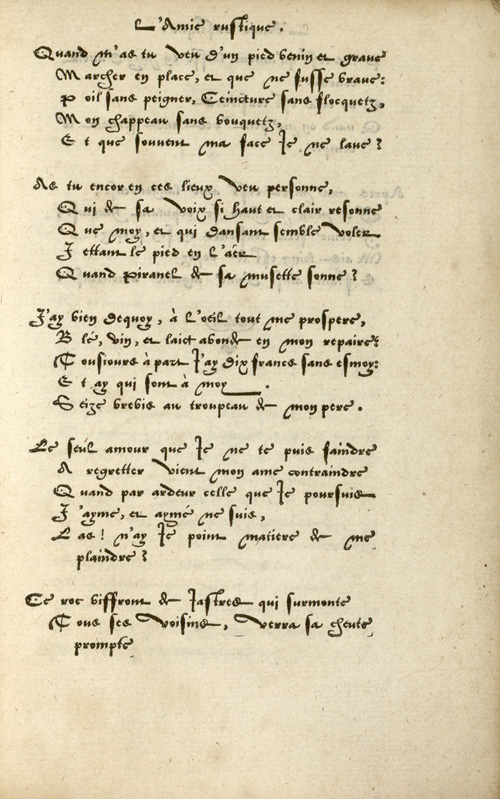 L'Amie rustique.
Quand m'as tu veu d'un pied venin et grave
Marcher en place, et que ne fusse brave:
Poil sans peigner, Ceincture sans flocquetz,
Mon chappeau sans bouquetz,
Et que souvent ma face Je ne lave?
As tu encor en ces lieux veu personne,
Qui de sa voix si haut et clair resonne
Que moy, et qui dansant semble voler
Jettant le pied en l'aër
Quand Piranel de sa musette sonne?
J'ay bien dequoy, à l'oeil tout me prospere,
Blé, vin, et laict abonde en mon repaire:
Tousiours à part J'ay dix francs sans esmoy:
Et ay qui sont à moy
Seize brebis au troupeau de mon pere.
Le seul amour que Je ne te puis faindre
A regretter vient mon ame contraindre
Quand par ardeur celle que Je poursuis
J'ayme, et aymé ne suis,
Las! n'ay Je point matiere de me
plaindre?
Ce roc biffront de Jastres qui surmonte
Tous ses voisins, verra sa cheute
prompte